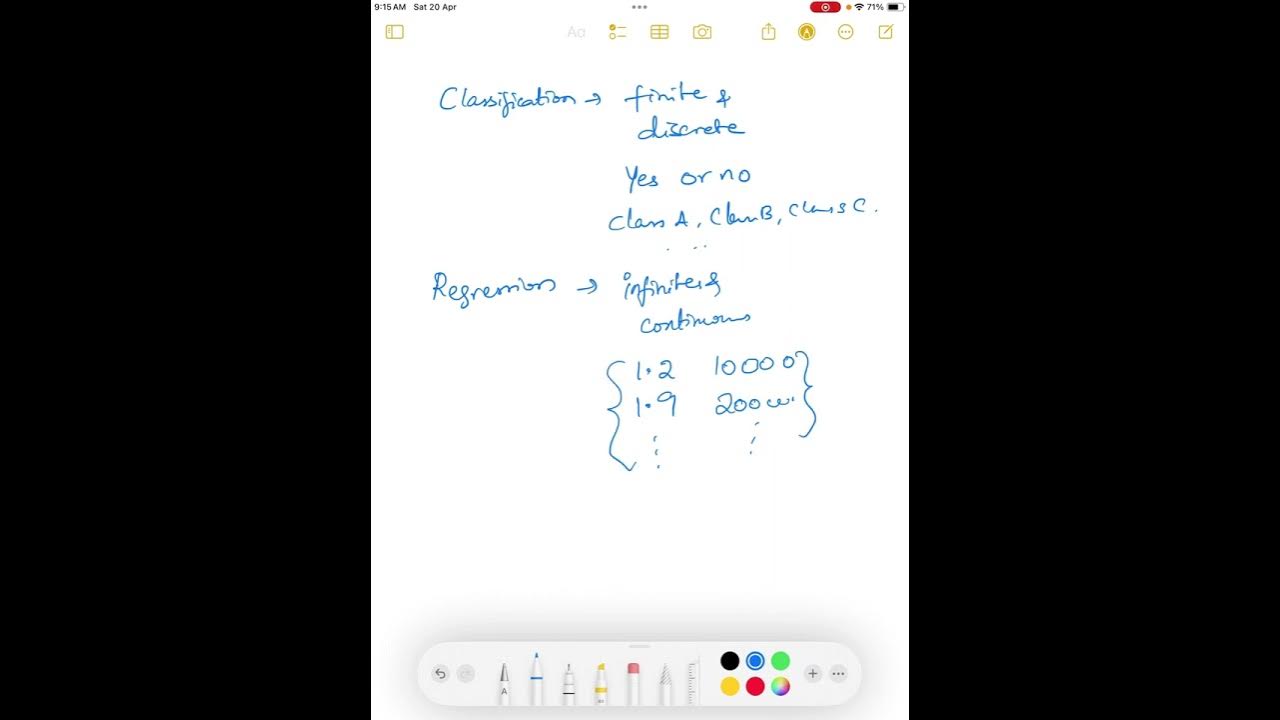 9:15 AM Sat 20 Apr 71%
Aa
Classification → finite &
discrete
Yes or no
Class A, Class B, Class C.
Regression → infinite &
continuous
1.2 10000
1.9
A